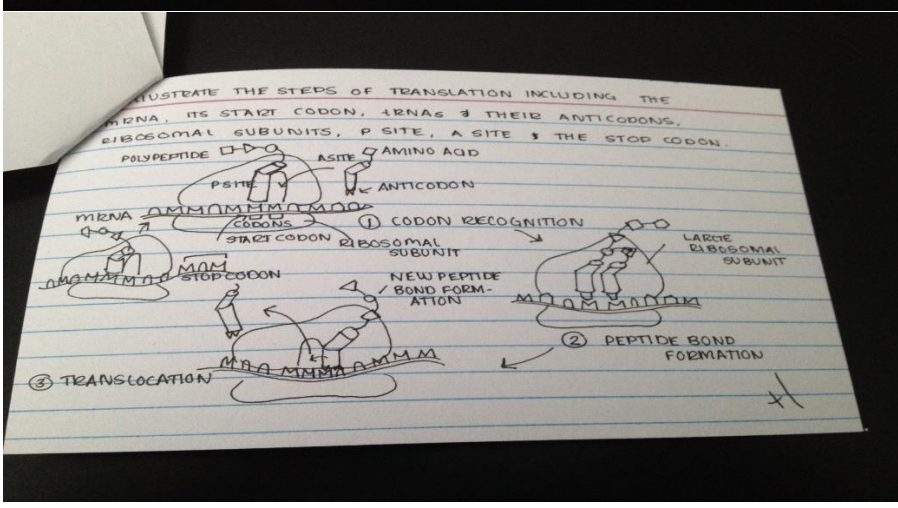 USTRATE THE STEPS OF TRANSLATION INCLUDING THE
MRNA, ITS START CODON, tRNAs & THEIR ANTICODONS,
RIBOSOMAL SUBUNITS, P SITE, A SITE & THE STOP CODON.
POLYPEPTIDE
A SITE
AMINO ACID
P SITE
ANTICODON
MRNA
CODONS
① CODON RECOGNITION
START CODON
RIBOSOMAL
SUBUNIT
LARGE
RIBOSOMAL
SUBUNIT
STOP CODON
NEW PEPTIDE
BOND FORM-
ATION
② PEPTIDE BOND
FORMATION
③ TRANSLOCATION
+1